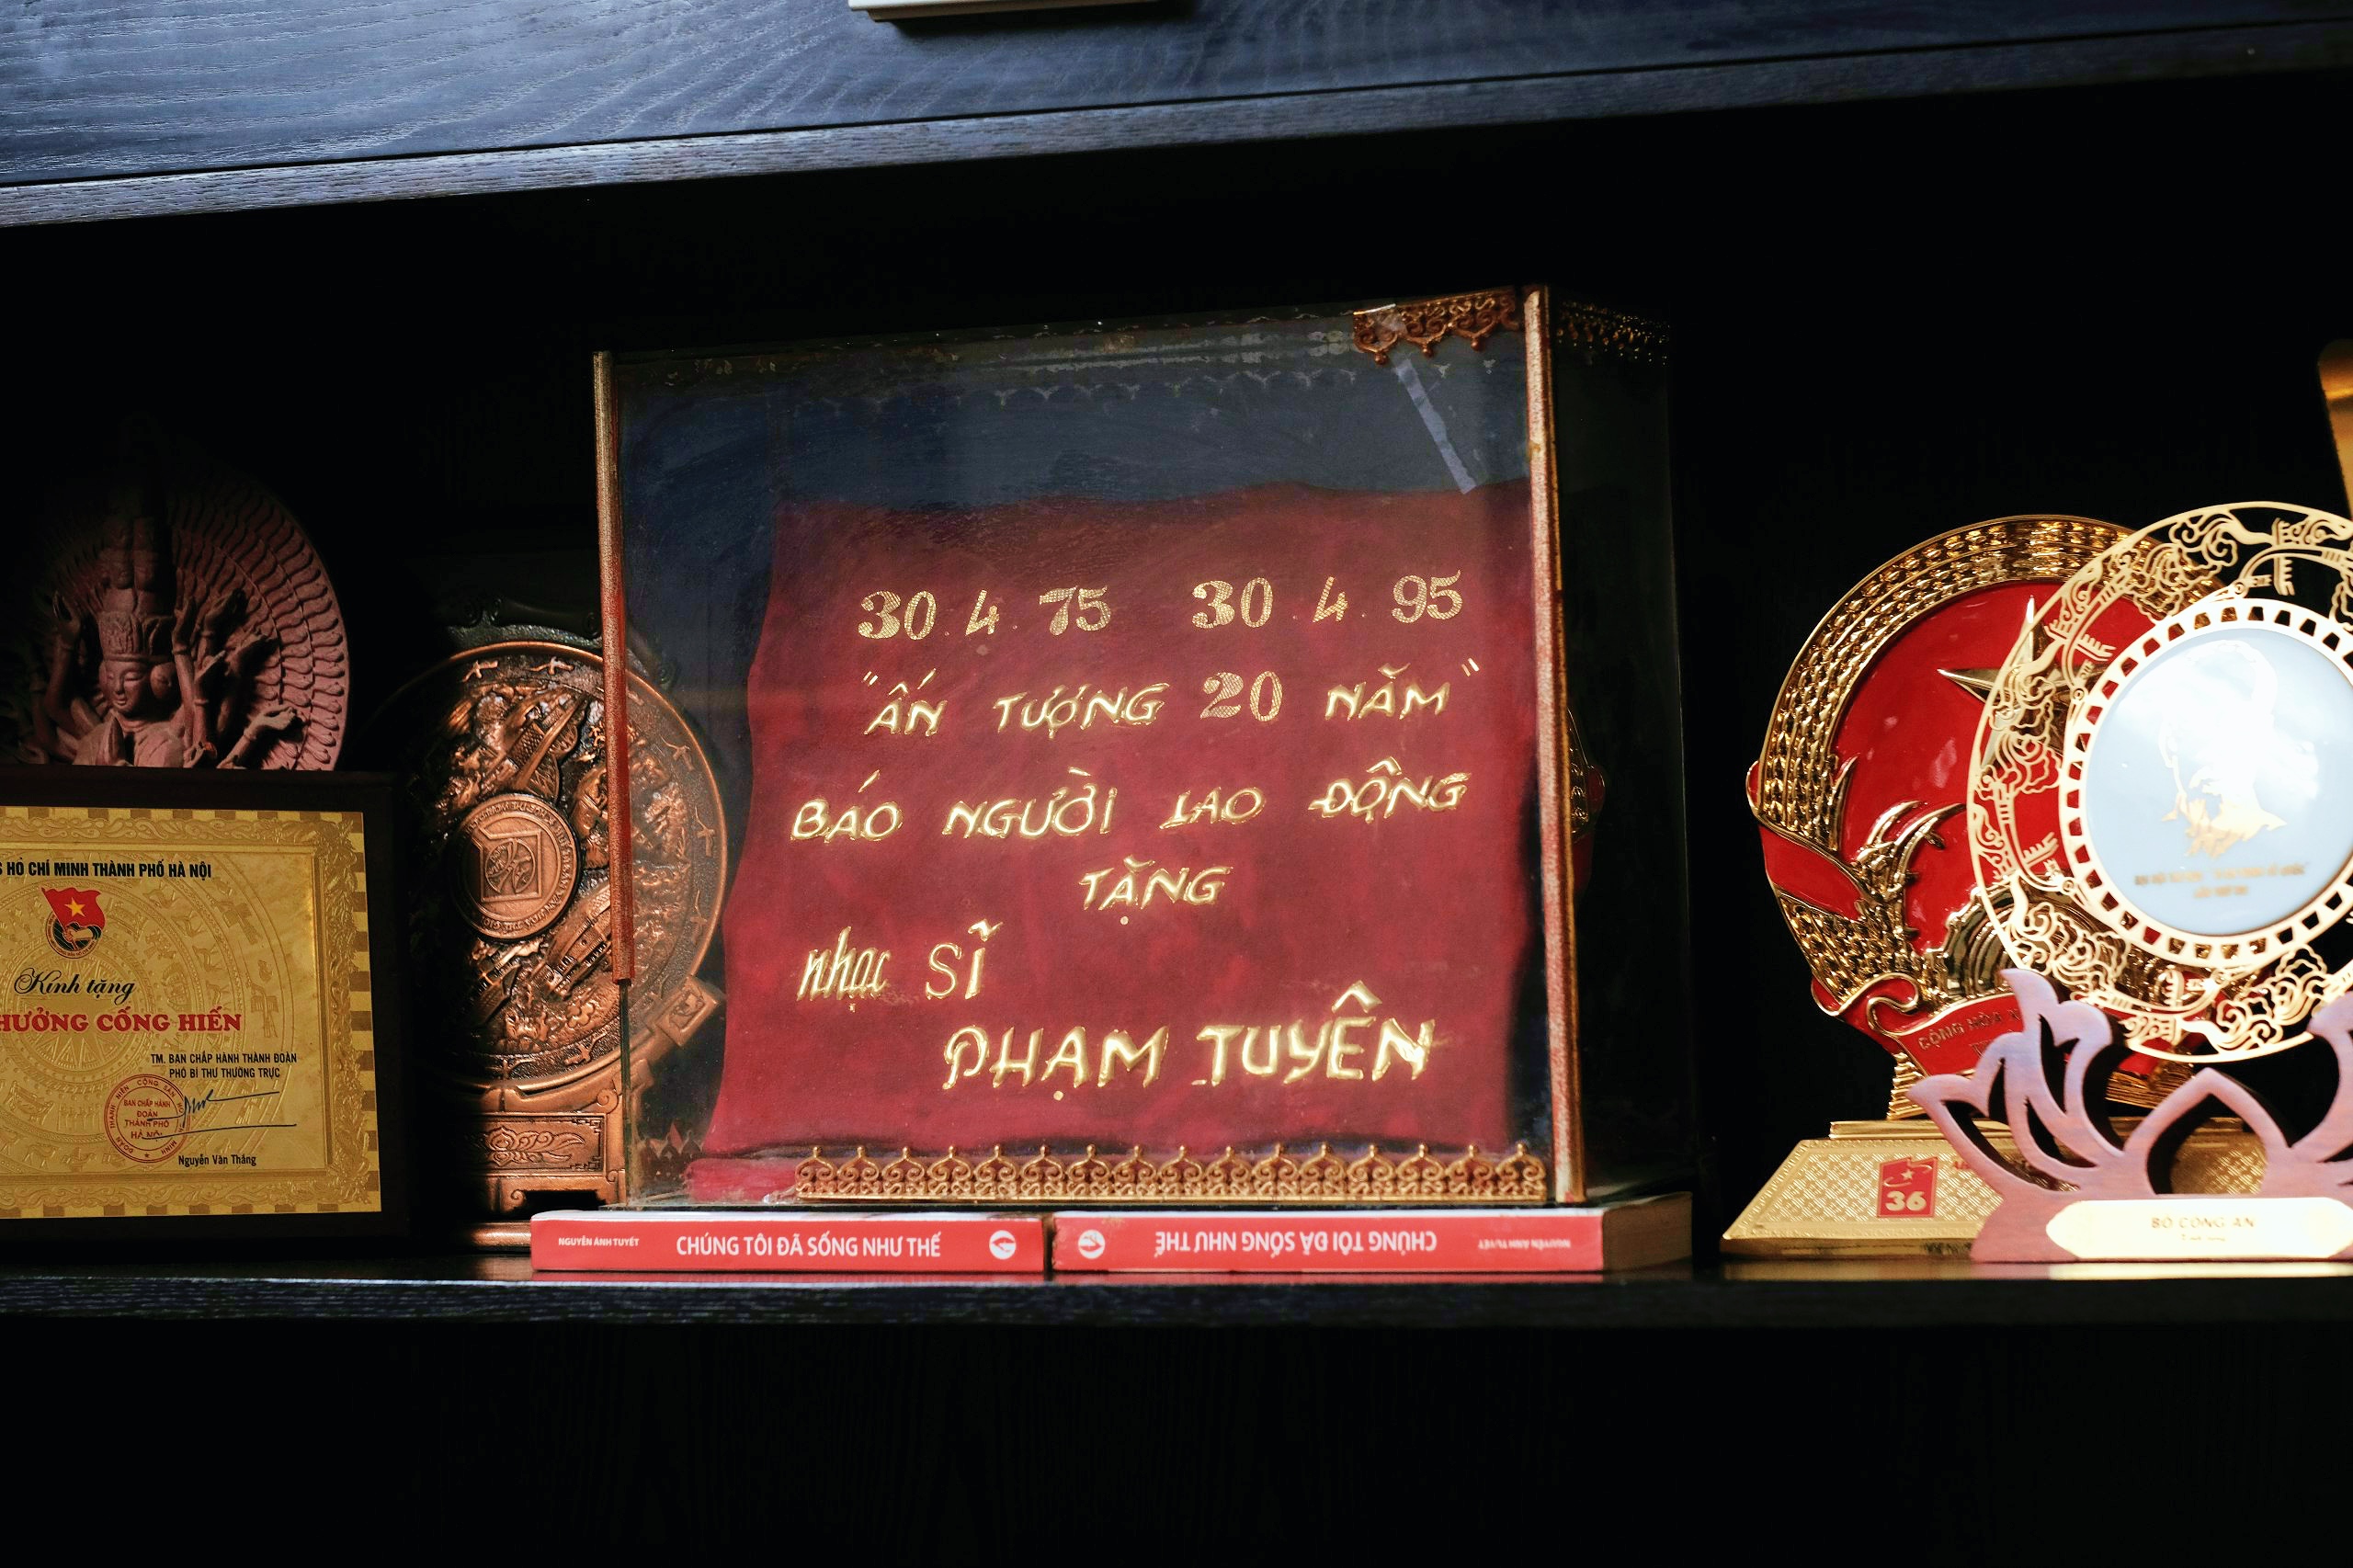 HỒ CHÍ MINH THÀNH PHỐ HÀ NỘI
Kính tặng
HƯỞNG CỐNG HIẾN
TM. BAN CHẤP HÀNH THÀNH ĐOÀN
PHÓ BÍ THƯ THƯỜNG TRỰC
BAN CHẤP HÀNH
ĐOÀN
THÀNH PHỐ
HÀ NỘI
Nguyễn Văn Thắng
30.4.75 30.4.95
"ẤN TƯỢNG 20 NĂM"
BÁO NGƯỜI LAO ĐỘNG
TẶNG
nhạc SĨ
PHẠM TUYÊN
NGUYỄN ÁNH TUYẾT CHÚNG TÔI ĐÃ SỐNG NHƯ THẾ
CHÚNG TÔI ĐÃ SỐNG NHƯ THẾ NGUYỄN ÁNH TUYẾT
CỘNG HÒA
36
BỘ CÔNG AN